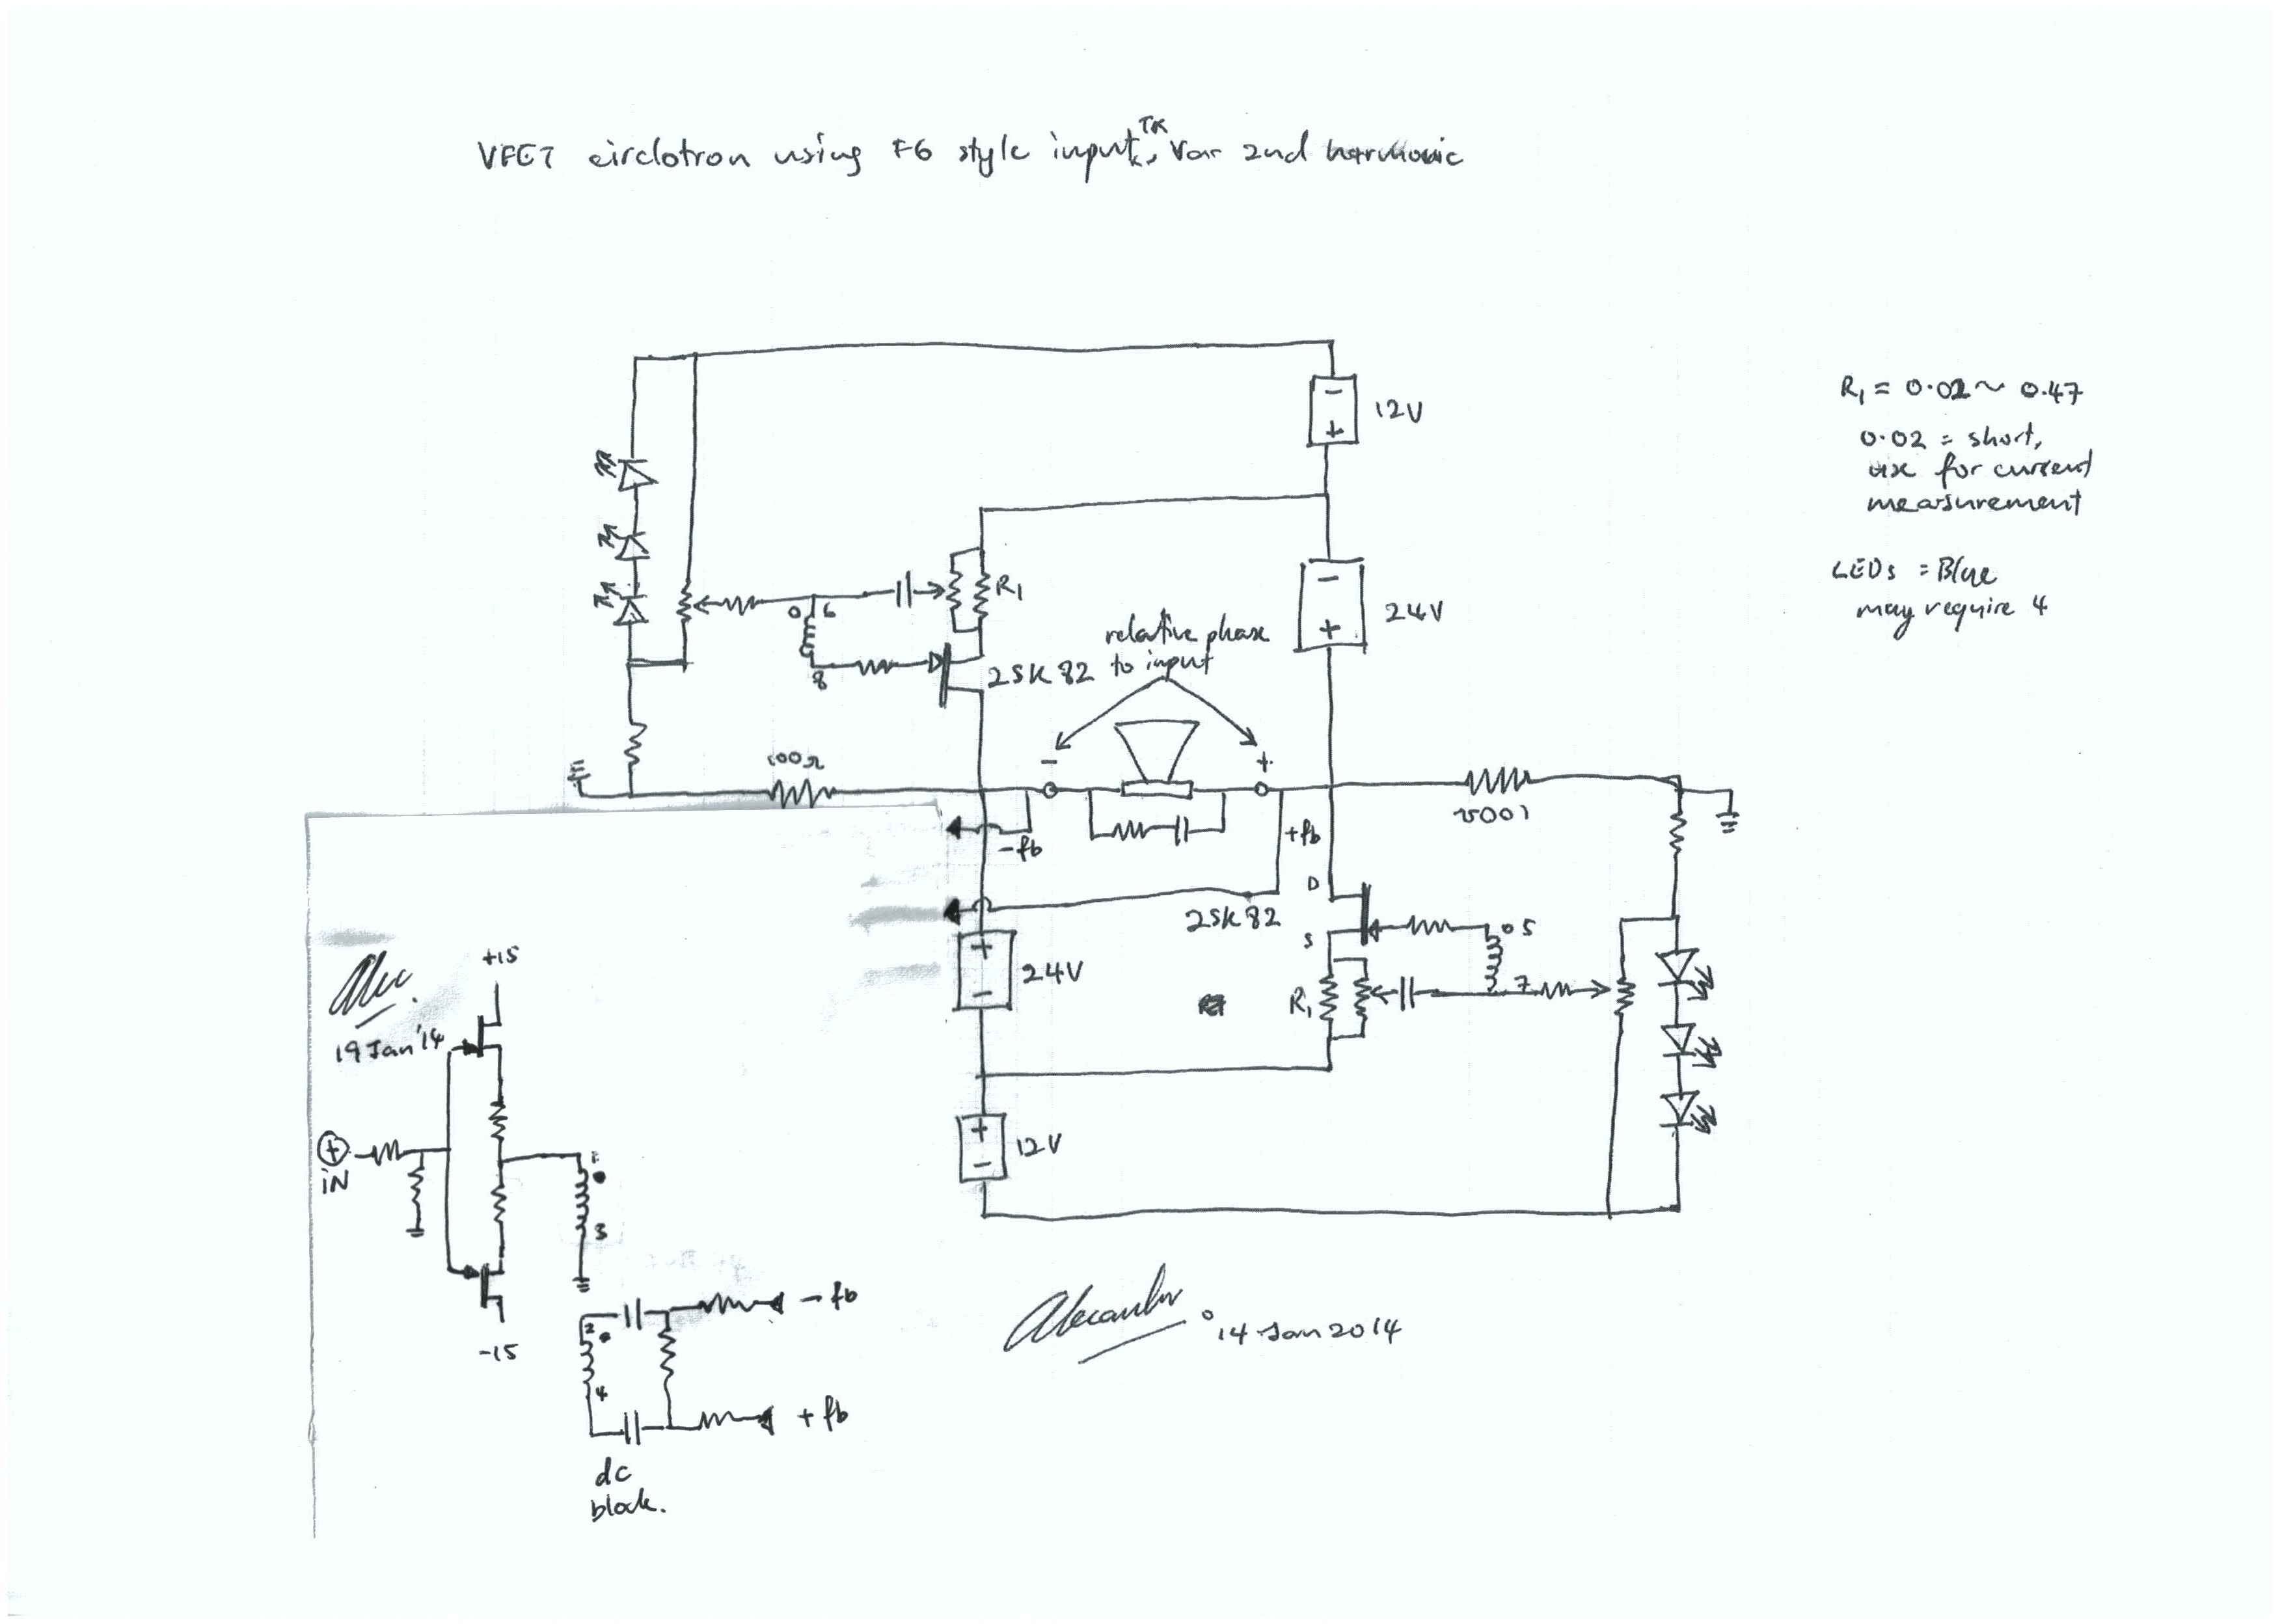 VFET circlotron using F6 style input TX, Var 2nd harmonic
12V
R1 = 0.02 ~ 0.47
0.02 = short,
use for current
measurement
LEDs = Blue
may require 4
R1
6
8
24V
relative phase
to input
2SK82
100Ω
-
+
-fb
+fb
100Ω
D
2SK82
S
5
7
R1
24V
12V
+15
19 Jan '14
IN
1
3
-15
2
4
- fb
+ fb
dc
block.
14 Jan 2014